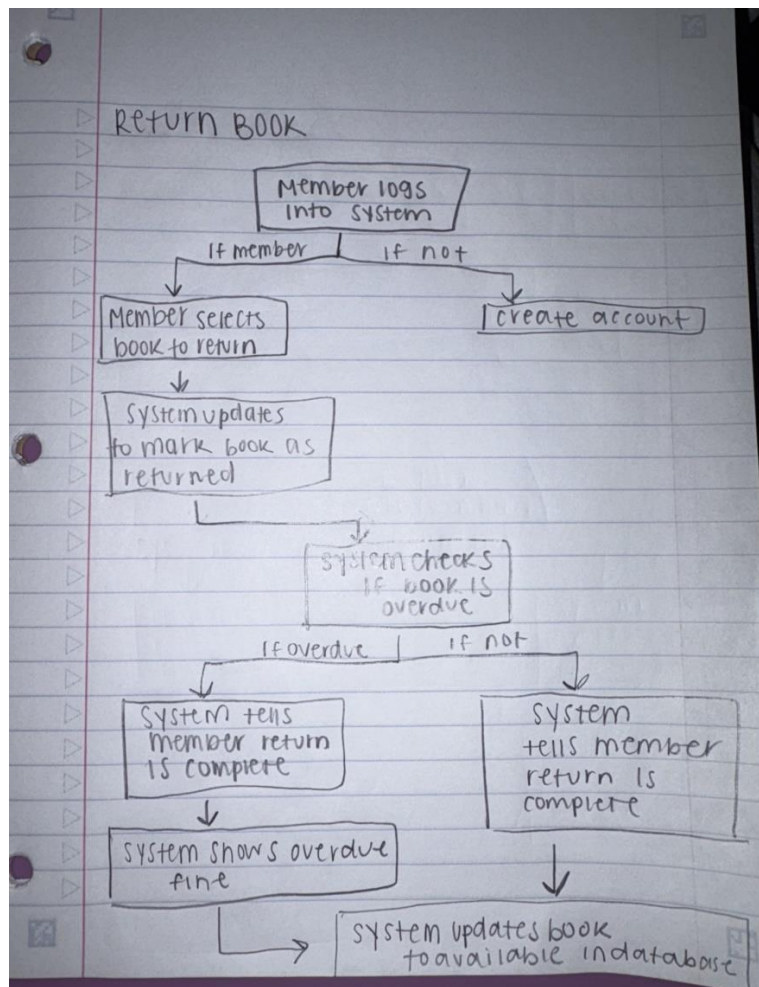 Return Book
Member logs
into system
If member
if not
Member selects
book to return
create account
system updates
to mark book as
returned
system checks
if book is
overdue
If overdue
if not
system tells
member return
is complete
system
tells member
return is
complete
system shows overdue
fine
system updates book
to available in database